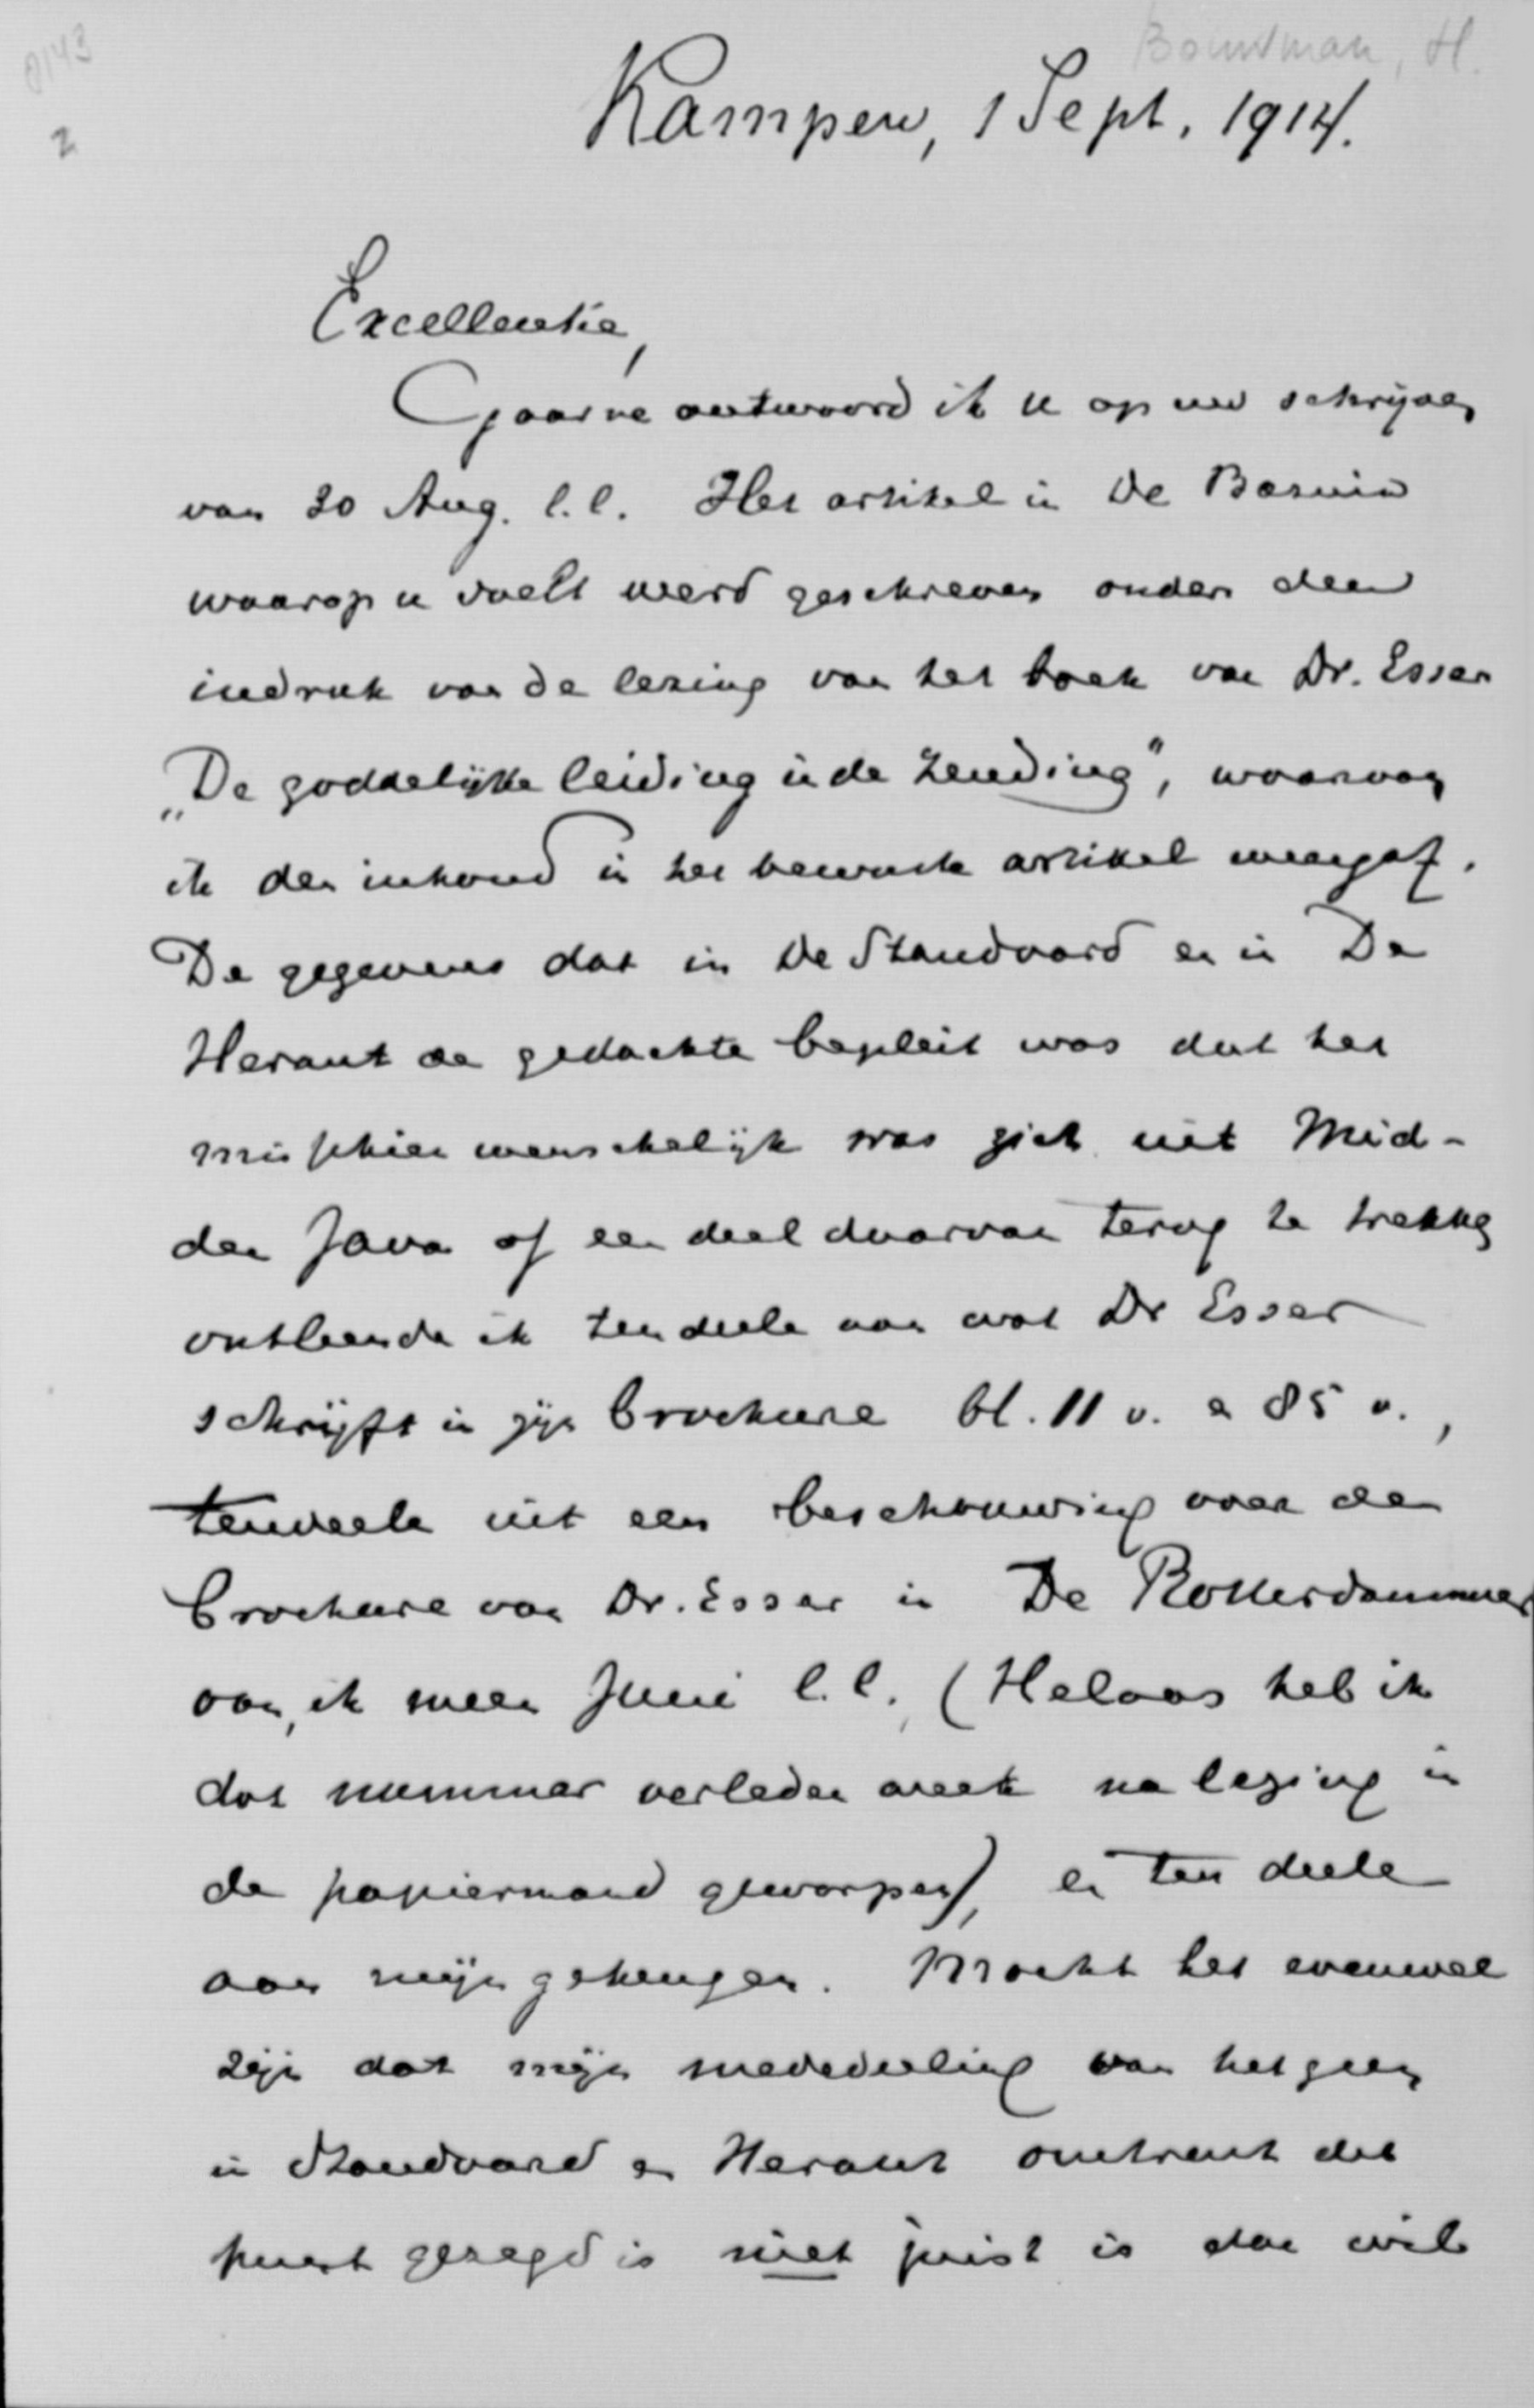 Bouwman, H.
8143
2
Kampen, 1 Sept. 1914.
Excellentie,
Gaarne antwoord ik u op uw schrijven
van 30 Aug. l.l. Het artikel in De Bazuin
waarop u doelt werd geschreven onder den
indruk van de lezing van het boek van Dr. Esser
„De goddelijke leiding in de Zending", waarvan
ik den inhoud in het bewuste artikel weergaf.
De gegevens dat in De Standaard en in De
Heraut de gedachte bepleit was dat het
misschien wenschelijk was zich uit Mid-
den Java of een deel daarvan terug te trekken
ontleende ik ten deele aan wat Dr Esser
schrijft in zijn brochure bl. 11 v. en 85 v.,
tendeele uit een beschouwing over de
brochure van Dr. Esser in De Rotterdammer
van, ik meen Juni l.l., (Helaas heb ik
dat nummer verleden week na lezing in
de papiermand geworpen), en ten deele
aan mijn geheugen. Mocht het evenwel
zijn dat mijn mededeeling van hetgeen
in Standaard en Heraut omtrent dit
punt gezegd is niet juist is dan wil